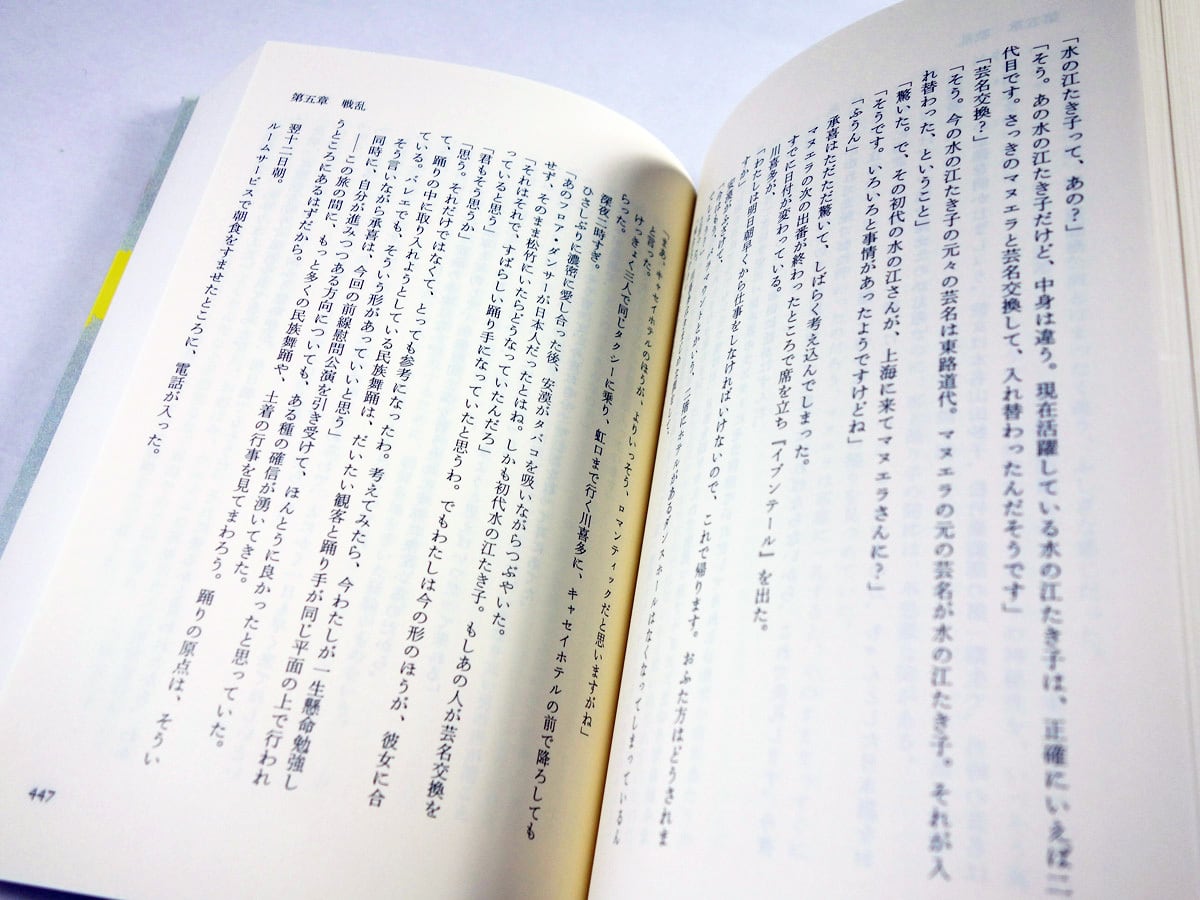 「水の江たき子って、あの?」
「そう。あの水の江たき子だけど、中身は違う。現在活躍している水の江たき子は、正確にいえば二
代目です。さっきのマヌエラと芸名交換して、入れ替わったんだそうです」
「芸名交換?」
「そう。今の水の江たき子の元々の芸名は東路道代。マヌエラの元の芸名が水の江たき子。それが入
れ替わった、ということ」
「驚いた。で、その初代の水の江さんが、上海に来てマヌエラさんに?」
「そうです。いろいろと事情があったようですけどね」
「ふうん」
承喜はただただ驚いて、しばらく考え込んでしまった。
マヌエラの次の出番が終わったところで席を立ち『イブンテール』を出た。
すでに日付が変わっている。
川喜多が、
「わたしは明日朝早くから仕事をしなければいけないので、これで帰ります。おふた方はどうされま
すか」
二階にホテルがあるダンスホールはなくなってしまっているん
「まあ、キャセイホテルのほうが、よりいっそう、ロマンティックだと思いますがね」
と言った。
けっきょく三人で同じタクシーに乗り、虹口まで行く川喜多に、キャセイホテルの前で降ろしても
らった。
深夜二時すぎ。
ひさしぶりに濃密に愛し合った後、安漠がタバコを吸いながらつぶやいた。
「あのフロア・ダンサーが日本人だったとはね。しかも初代水の江たき子。もしあの人が芸名交換を
せず、そのまま松竹にいたらどうなっていたんだろ」
「それはそれで、すばらしい踊り手になっていたと思うわ。でもわたしは今の形のほうが、彼女に合
っていると思う」
「君もそう思うか」
「思う。それだけではなくて、とっても参考になったわ。考えてみたら、今わたしが一生懸命勉強し
て、踊りの中に取り入れようとしている民族舞踊は、だいたい観客と踊り手が同じ平面の上で行われ
ている。バレエでも、そういう形があっていいと思う」
そう言いながら承喜は、今回の前線慰問公演を引き受けて、ほんとうに良かったと思っていた。
同時に、自分が進みつつある方向についても、ある種の確信が湧いてきた。
――この旅の間に、もっと多くの民族舞踊や、土着の行事を見てまわろう。踊りの原点は、そうい
うところにあるはずだから。
翌十二日朝。
ルームサービスで朝食をすませたところに、電話が入った。
第五章 戦乱
447